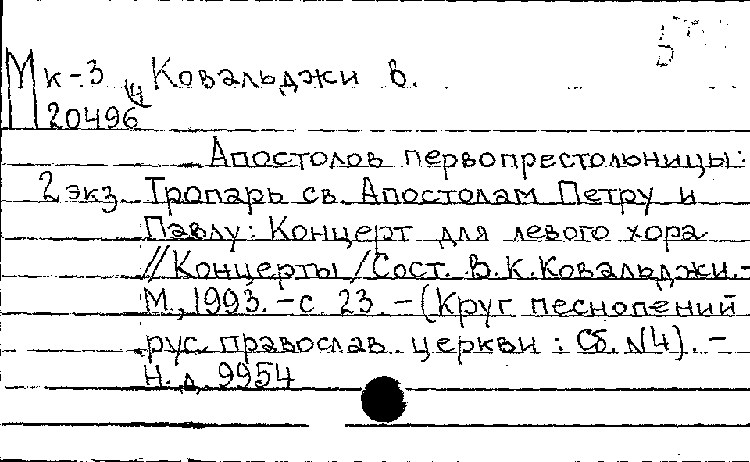 Мк-3 Ковальджи В.
20496
Апостолов первопрестольницы:
2 экз. Тропарь св. Апостолам Петру и
Павлу: Концерт для левого хора
// Концерты / Сост. В.К. Ковальджи.-
М., 1993. - с. 23. - (Круг песнопений
рус. православ. церкви : Сб. N4). -
Н.д. 9954